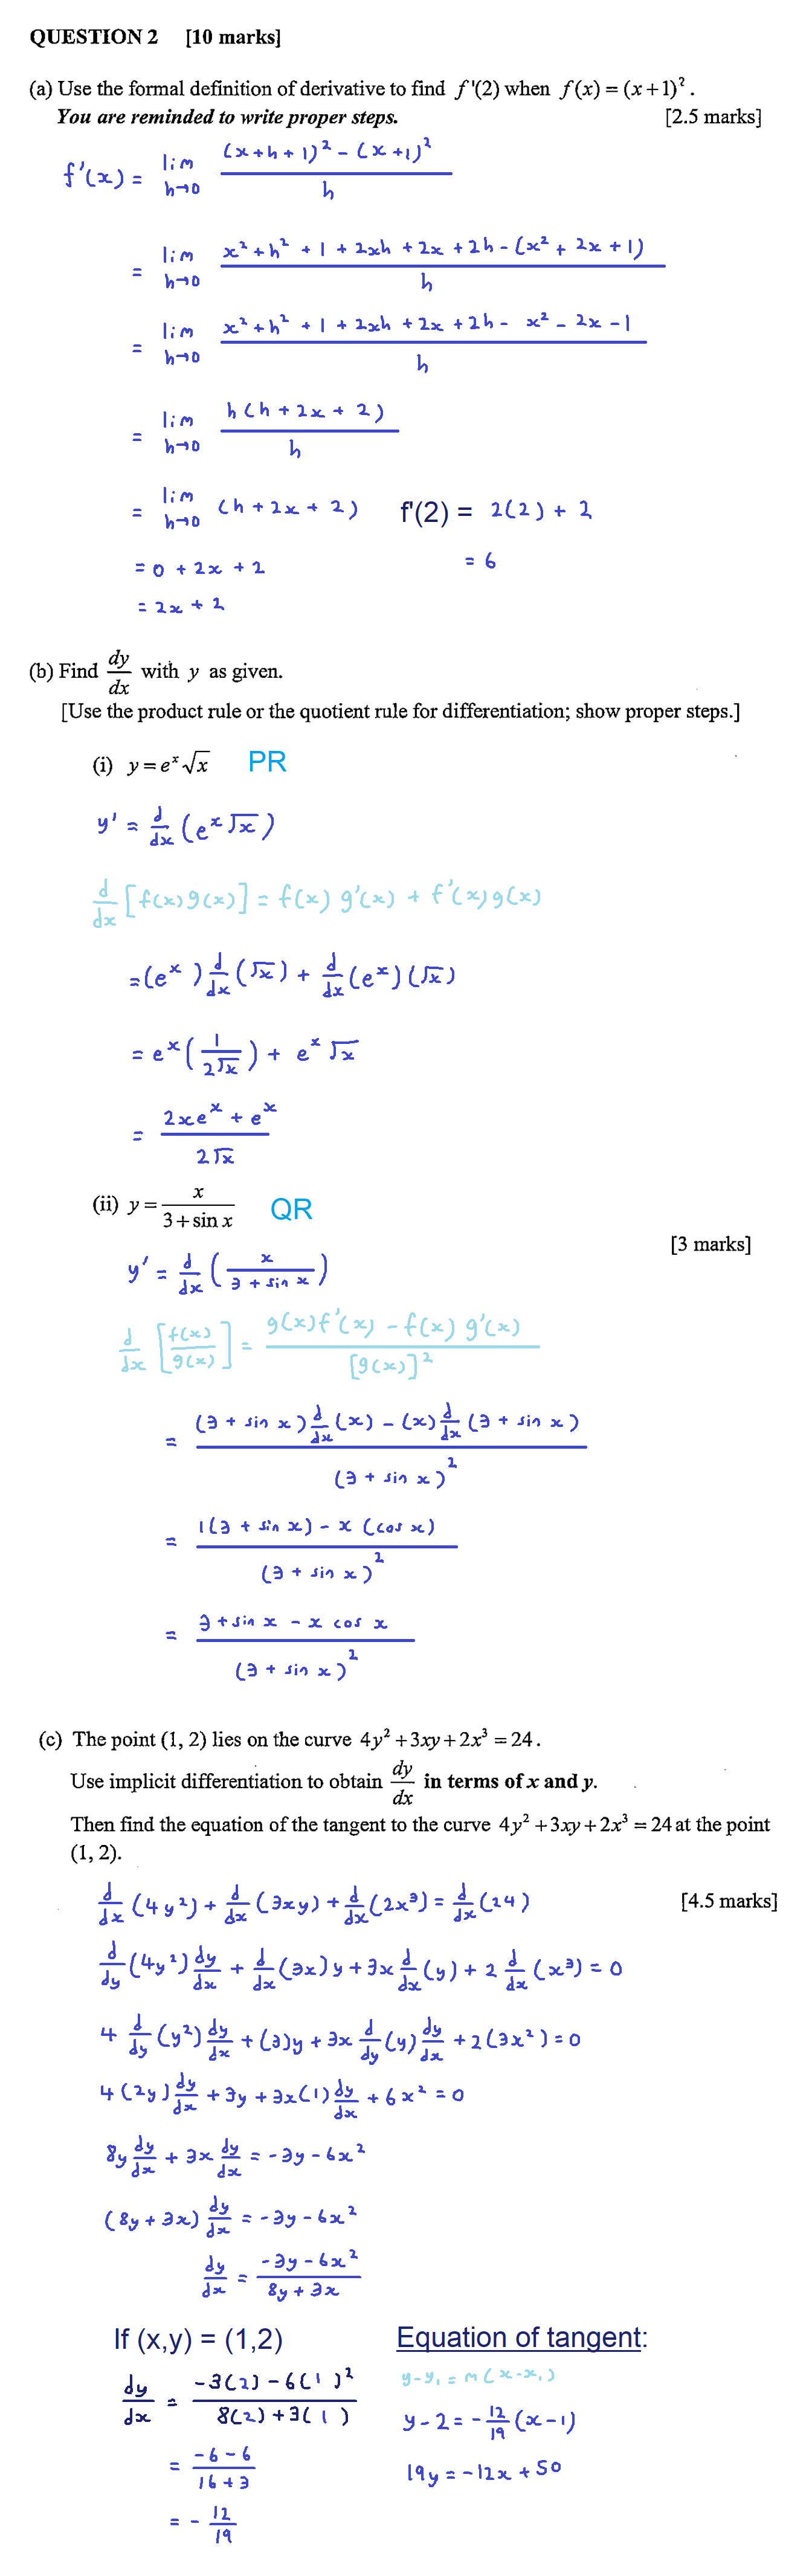 QUESTION 2 [10 marks]
(a) Use the formal definition of derivative to find f'(2) when f(x) = (x+1)².
You are reminded to write proper steps. [2.5 marks]
f'(x) = lim h→0 ((x+h+1)² - (x+1)²) / h
= lim h→0 (x² + h² + 1 + 2xh + 2x + 2h - (x² + 2x + 1)) / h
= lim h→0 (x² + h² + 1 + 2xh + 2x + 2h - x² - 2x - 1) / h
= lim h→0 h(h + 2x + 2) / h
= lim h→0 (h + 2x + 2) f'(2) = 2(2) + 2
= 0 + 2x + 2 = 6
= 2x + 2
(b) Find dy/dx with y as given.
[Use the product rule or the quotient rule for differentiation; show proper steps.]
(i) y = eˣ√x PR
y' = d/dx (eˣ√x)
d/dx [f(x)g(x)] = f(x) g'(x) + f'(x)g(x)
= (eˣ) d/dx (√x) + d/dx (eˣ)(√x)
= eˣ(1/(2√x)) + eˣ√x
= (2xeˣ + eˣ) / (2√x)
(ii) y = x/(3 + sin x) QR
[3 marks]
y' = d/dx (x/(3 + sin x))
d/dx [f(x)/g(x)] = (g(x)f'(x) - f(x)g'(x)) / [g(x)]²
= ((3 + sin x) d/dx (x) - (x) d/dx (3 + sin x)) / (3 + sin x)²
= (1(3 + sin x) - x(cos x)) / (3 + sin x)²
= (3 + sin x - x cos x) / (3 + sin x)²
(c) The point (1, 2) lies on the curve 4y² + 3xy + 2x³ = 24.
Use implicit differentiation to obtain dy/dx in terms of x and y.
Then find the equation of the tangent to the curve 4y² + 3xy + 2x³ = 24 at the point
(1, 2).
d/dx (4y²) + d/dx (3xy) + d/dx (2x³) = d/dx (24) [4.5 marks]
d/dy (4y²) dy/dx + d/dx (3x)y + 3x d/dx (y) + 2 d/dx (x³) = 0
4 d/dy (y²) dy/dx + (3)y + 3x d/dy (y) dy/dx + 2(3x²) = 0
4(2y) dy/dx + 3y + 3x(1) dy/dx + 6x² = 0
8y dy/dx + 3x dy/dx = -3y - 6x²
(8y + 3x) dy/dx = -3y - 6x²
dy/dx = (-3y - 6x²) / (8y + 3x)
If (x,y) = (1,2) Equation of tangent:
dy/dx = (-3(2) - 6(1)²) / (8(2) + 3(1)) y - y₁ = m(x - x₁)
y - 2 = -12/19 (x - 1)
= (-6 - 6) / (16 + 3) 19y = -12x + 50
= -12/19